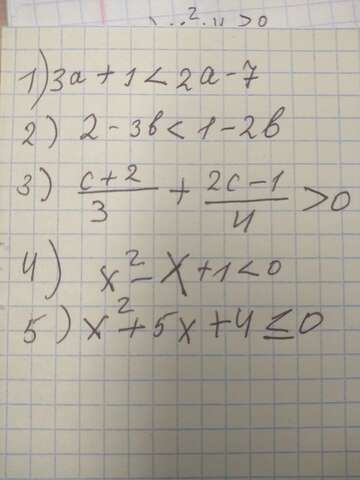 ² > 0
1) 3a + 1 < 2a - 7
2) 2 - 3b < 1 - 2b
3) (c + 2)/3 + (2c - 1)/4 > 0
4) x² - x + 1 < 0
5) x² + 5x + 4 ≤ 0